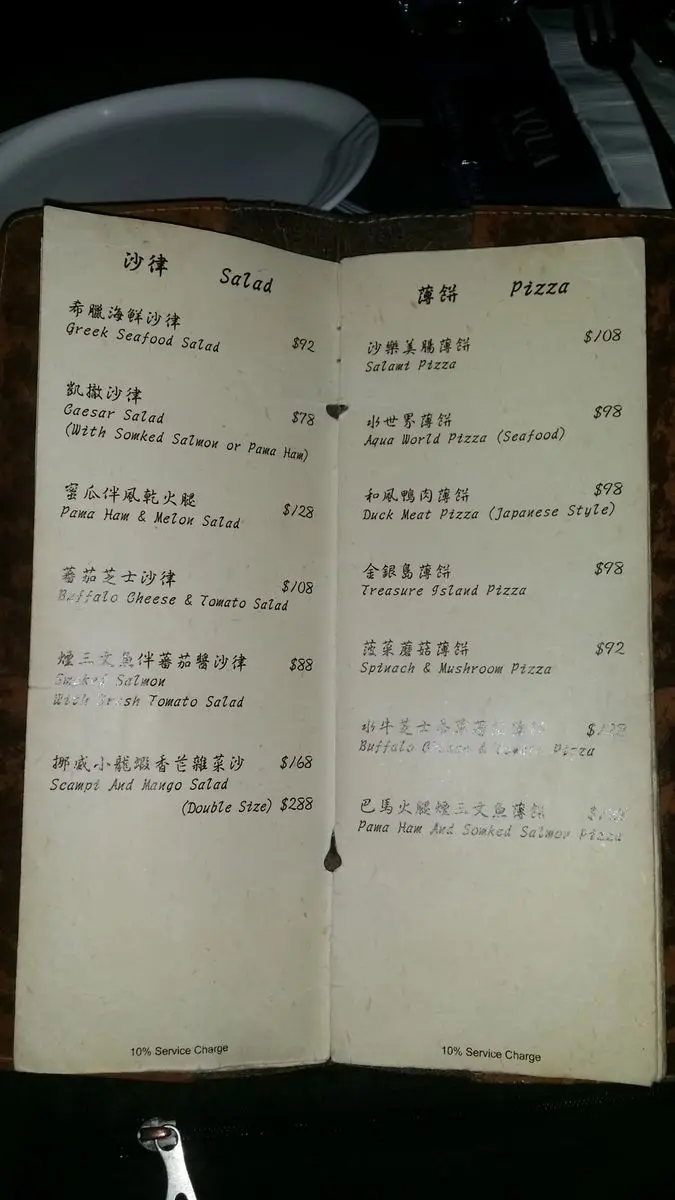 AQUA
沙律 Salad
希臘海鮮沙律
Greek Seafood Salad $92
凱撒沙律
Caesar Salad $78
(With Somked Salmon or Pama Ham)
蜜瓜伴風乾火腿
Pama Ham & Melon Salad $128
蕃茄芝士沙律
Buffalo Cheese & Tomato Salad $108
煙三文魚伴蕃茄醬沙律 $88
Smoked Salmon
With Crush Tomato Salad
挪威小龍蝦香芒雜菜沙 $168
Scampi And Mango Salad
(Double Size) $288
10% Service Charge
薄餅 Pizza
沙樂美腸薄餅 $108
Salami Pizza
水世界薄餅 $98
Aqua World Pizza (Seafood)
和風鴨肉薄餅 $98
Duck Meat Pizza (Japanese Style)
金銀島薄餅 $98
Treasure Island Pizza
菠菜蘑菇薄餅 $92
Spinach & Mushroom Pizza
水牛芝士
Buffalo & Pizza
巴馬火腿煙三文魚薄餅
Pama Ham And Somked Salmon Pizza
10% Service Charge